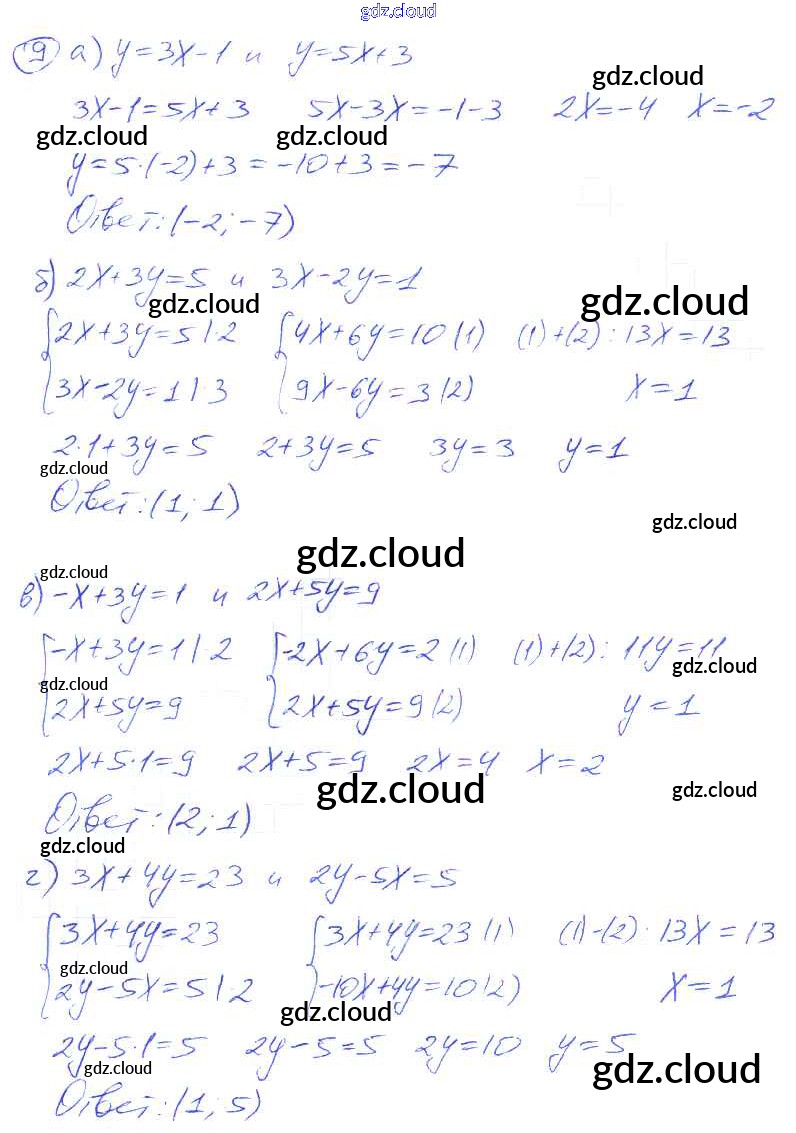 gdz.cloud
9 а) y=3x-1 и y=5x+3
gdz.cloud
3x-1=5x+3 5x-3x=-1-3 2x=-4 x=-2
gdz.cloud gdz.cloud
y=5·(-2)+3=-10+3=-7
Ответ: (-2; -7)
б) 2x+3y=5 и 3x-2y=1
gdz.cloud gdz.cloud
{2x+3y=5 |·2 {4x+6y=10 (1) (1)+(2): 13x=13
3x-2y=1 |·3 9x-6y=3 (2) x=1
2·1+3y=5 2+3y=5 3y=3 y=1
gdz.cloud
Ответ: (1; 1)
gdz.cloud
gdz.cloud
gdz.cloud
в) -x+3y=1 и 2x+5y=9
{-x+3y=1 |·2 {-2x+6y=2 (1) (1)+(2): 11y=11
gdz.cloud gdz.cloud
2x+5y=9 2x+5y=9 (2) y=1
2x+5·1=9 2x+5=9 2x=4 x=2
gdz.cloud gdz.cloud
Ответ: (2; 1)
gdz.cloud
г) 3x+4y=23 и 2y-5x=5
{3x+4y=23 {3x+4y=23 (1) (1)-(2): 13x=13
gdz.cloud
2y-5x=5 |·2 -10x+4y=10 (2) x=1
gdz.cloud
2y-5·1=5 2y-5=5 2y=10 y=5
gdz.cloud gdz.cloud
Ответ: (1; 5)